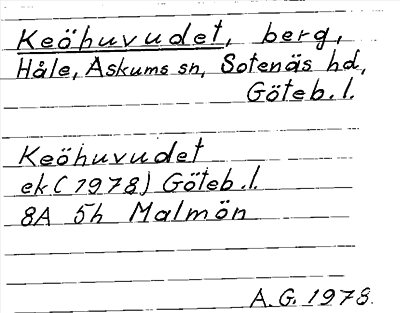 Keöhuvudet, berg,
Håle, Askums sn, Sotenäs hd,
Göteb.l.
Keöhuvudet
ek (1978) Göteb.l.
8A 5h Malmön
A.G. 1978.